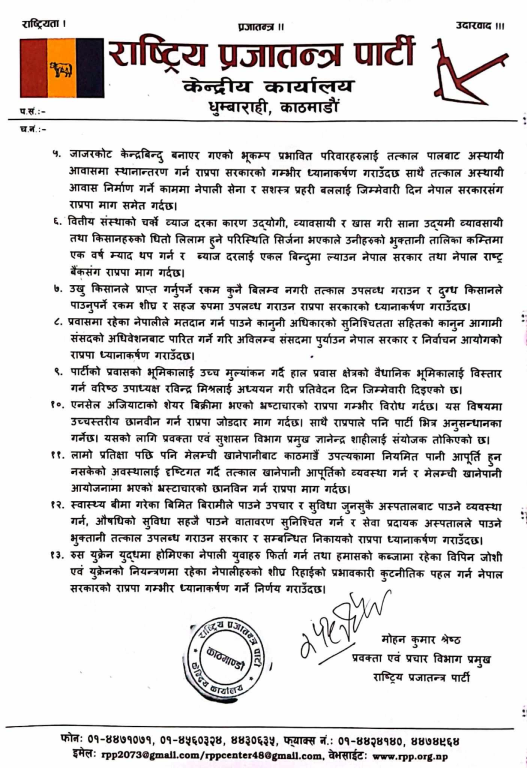 राष्ट्रियता ।
प्रजातन्त्र ।।
उदारवाद ।।।
राष्ट्रिय प्रजातन्त्र पार्टी
केन्द्रीय कार्यालय
धुम्बाराही, काठमाडौं
प.सं.:-
च.नं.:-
५. जाजरकोट केन्द्रबिन्दु बनाएर गएको भूकम्प प्रभावित परिवारहरुलाई तत्काल पालबाट अस्थायी
आवासमा स्थानान्तरण गर्न राप्रपा सरकारको गम्भीर ध्यानाकर्षण गराउँदछ साथै तत्काल अस्थायी
आवास निर्माण गर्ने काममा नेपाली सेना र सशस्त्र प्रहरी बललाई जिम्मेवारी दिन नेपाल सरकारसंग
राप्रपा माग समेत गर्दछ।
६. वितीय संस्थाको चर्को ब्याज दरका कारण उद्योगी, व्यावसायी र खास गरी साना उद्यमी व्यावसायी
तथा किसानहरुको धितो लिलाम हुने परिस्थिति सिर्जना भएकाले उनीहरुको भुक्तानी तालिका कम्तिमा
एक वर्ष म्याद थप गर्न र ब्याज दरलाई एकल बिन्दुमा ल्याउन नेपाल सरकार तथा नेपाल राष्ट्र
बैंकसंग राप्रपा माग गर्दछ।
७. उखु किसानले प्राप्त गर्नुपर्ने रकम कुनै बिलम्व नगरी तत्काल उपलब्ध गराउन र दुग्ध किसानले
पाउनुपर्ने रकम शीघ्र र सहज रुपमा उपलब्ध गराउन राप्रपा सरकारको ध्यानाकर्षण गराउँदछ।
८. प्रवासमा रहेका नेपालीले मतदान गर्न पाउने कानुनी अधिकारको सुनिश्चितता सहितको कानुन आगामी
संसदको अधिवेशनबाट पारित गर्ने गरि अविलम्ब संसदमा पुर्याउन नेपाल सरकार र निर्वाचन आयोगको
राप्रपा ध्यानाकर्षण गराउँदछ।
९. पार्टीको प्रवासको भूमिकालाई उच्च मुल्यांकन गर्दै हाल प्रवास क्षेत्रको वैधानिक भूमिकालाई विस्तार
गर्न वरिष्ठ उपाध्यक्ष रविन्द्र मिश्रलाई अध्ययन गरी प्रतिवेदन दिन जिम्मेवारी दिइएको छ।
१०. एनसेल अजियाटाको शेयर बिक्रीमा भएको भ्रष्टाचारको राप्रपा गम्भीर विरोध गर्दछ। यस विषयमा
उच्चस्तरीय छानवीन गर्न राप्रपा जोडदार माग गर्दछ। साथै राप्रपाले पनि पार्टी भित्र अनुसन्धानका
गर्नेछ। यसको लागि प्रवक्ता एवं सुशासन विभाग प्रमुख ज्ञानेन्द्र शाहीलाई संयोजक तोकिएको छ।
११. लामो प्रतिक्षा पछि पनि मेलम्ची खानेपानीबाट काठमाडौं उपत्यकामा नियमित पानी आपूर्ति हुन
नसकेको अवस्थालाई दृष्टिगत गर्दै तत्काल खानेपानी आपूर्तिको व्यवस्था गर्न र मेलम्ची खानेपानी
आयोजनामा भएको भ्रस्टाचारको छानविन गर्न राप्रपा माग गर्दछ।
१२. स्वास्थ्य बीमा गरेका बिमित बिरामीले पाउने उपचार र सुविधा जुनसुकै अस्पतालबाट पाउने व्यवस्था
गर्न, औषधिको सुविधा सहजै पाउने वातावरण सुनिश्चित गर्न र सेवा प्रदायक अस्पतालले पाउने
भुक्तानी तत्काल उपलब्ध गराउन सरकार र सम्बन्धित निकायको राप्रपा ध्यानाकर्षण गराउँदछ।
१३. रुस युक्रेन युद्धमा होमिएका नेपाली युवाहरु फिर्ता गर्न तथा हमासको कब्जामा रहेका विपिन जोशी
एवं युक्रेनको नियन्त्रणमा रहेका नेपालीहरुको शीघ्र रिहाईको प्रभावकारी कुटनीतिक पहल गर्न नेपाल
सरकारको राप्रपा गम्भीर ध्यानाकर्षण गर्ने निर्णय गराउँदछ।
राष्ट्रिय प्रजातन्त्र पार्टी
काठमाण्डौ
केन्द्रिय कार्यालय
मोहन कुमार श्रेष्ठ
प्रवक्ता एवं प्रचार विभाग प्रमुख
राष्ट्रिय प्रजातन्त्र पार्टी
फोन: ०१-४४७१०७१, ०१-४५६०३२४, ४४३०६३५, फ्याक्स नं.: ०१-४४२४१४०, ४४७४९६४
इमेल: rpp2073@gmail.com/rppcenter48@gmail.com, वेभसाईट: www.rpp.org.np